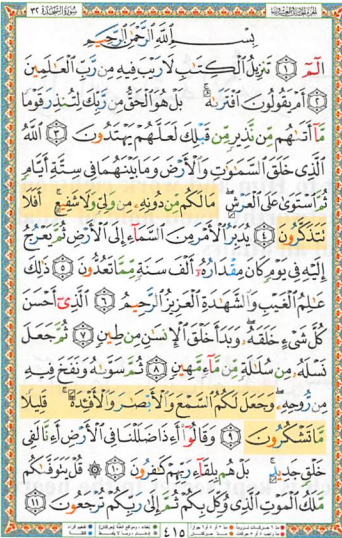 سورة السجدة ٣٢
بِسْمِ اللَّهِ الرَّحْمَٰنِ الرَّحِيمِ
الٓمٓ ١ تَنزِيلُ الْكِتَابِ لَا رَيْبَ فِيهِ مِن رَّبِّ الْعَالَمِينَ
٢ أَمْ يَقُولُونَ افْتَرَاهُ ۚ بَلْ هُوَ الْحَقُّ مِن رَّبِّكَ لِتُنذِرَ قَوْمًا
مَّا أَتَاهُم مِّن نَّذِيرٍ مِّن قَبْلِكَ لَعَلَّهُمْ يَهْتَدُونَ ٣ اللَّهُ
الَّذِي خَلَقَ السَّمَاوَاتِ وَالْأَرْضَ وَمَا بَيْنَهُمَا فِي سِتَّةِ أَيَّامٍ
ثُمَّ اسْتَوَىٰ عَلَى الْعَرْشِ ۖ مَا لَكُم مِّن دُونِهِ مِن وَلِيٍّ وَلَا شَفِيعٍ ۚ أَفَلَا
تَتَذَكَّرُونَ ٤ يُدَبِّرُ الْأَمْرَ مِنَ السَّمَاءِ إِلَى الْأَرْضِ ثُمَّ يَعْرُجُ
إِلَيْهِ فِي يَوْمٍ كَانَ مِقْدَارُهُ أَلْفَ سَنَةٍ مِّمَّا تَعُدُّونَ ٥ ذَٰلِكَ
عَالِمُ الْغَيْبِ وَالشَّهَادَةِ الْعَزِيزُ الرَّحِيمُ ٦ الَّذِي أَحْسَنَ
كُلَّ شَيْءٍ خَلَقَهُ ۖ وَبَدَأَ خَلْقَ الْإِنسَانِ مِن طِينٍ ٧ ثُمَّ جَعَلَ
نَسْلَهُ مِن سُلَالَةٍ مِّن مَّاءٍ مَّهِينٍ ٨ ثُمَّ سَوَّاهُ وَنَفَخَ فِيهِ
مِن رُّوحِهِ ۖ وَجَعَلَ لَكُمُ السَّمْعَ وَالْأَبْصَارَ وَالْأَفْئِدَةَ ۚ قَلِيلًا
مَّا تَشْكُرُونَ ٩ وَقَالُوا أَإِذَا ضَلَلْنَا فِي الْأَرْضِ أَإِنَّا لَفِي
خَلْقٍ جَدِيدٍ ۚ بَلْ هُم بِلِقَاءِ رَبِّهِمْ كَافِرُونَ ١٠ ۞ قُلْ يَتَوَفَّاكُم
مَّلَكُ الْمَوْتِ الَّذِي وُكِّلَ بِكُمْ ثُمَّ إِلَىٰ رَبِّكُمْ تُرْجَعُونَ ١١
٤١٥